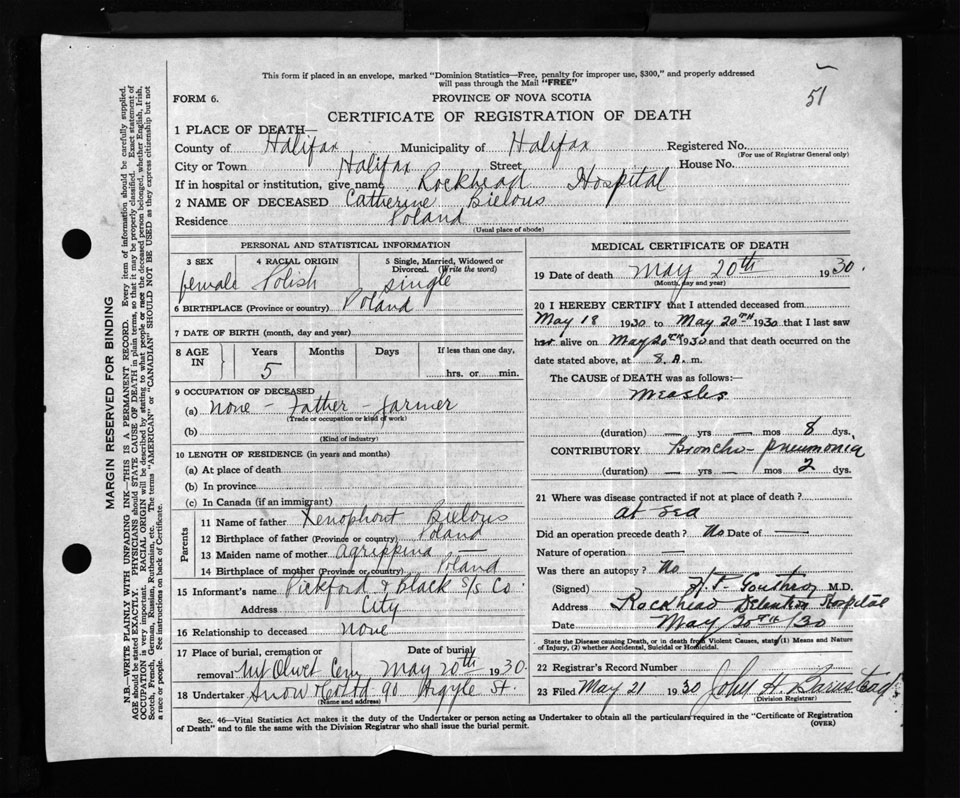 51
This form if placed in an envelope, marked "Dominion Statistics—Free, penalty for improper use, $300," and properly addressed
will pass through the Mail "FREE"
FORM 6.
PROVINCE OF NOVA SCOTIA
CERTIFICATE OF REGISTRATION OF DEATH
1 PLACE OF DEATH—
County of Halifax Municipality of Halifax Registered No.
(For use of Registrar General only)
City or Town Halifax Street House No.
If in hospital or institution, give name Rockhead Hospital
2 NAME OF DECEASED Catherine Bielous
Residence Poland
(Usual place of abode)
PERSONAL AND STATISTICAL INFORMATION
3 SEX 4 RACIAL ORIGIN 5 Single, Married, Widowed or
Divorced. (Write the word)
female Polish single
6 BIRTHPLACE (Province or country) Poland
7 DATE OF BIRTH (month, day and year)
8 AGE IN Years Months Days If less than one day,
5 hrs. or min.
9 OCCUPATION OF DECEASED
(a) none - Father - farmer
(Trade or occupation or kind of work)
(b)
(Kind of industry)
10 LENGTH OF RESIDENCE (in years and months)
(a) At place of death
(b) In province
(c) In Canada (if an immigrant)
Parents
11 Name of father Xenophont Bielous
12 Birthplace of father (Province or country) Poland
13 Maiden name of mother Agrippina —
14 Birthplace of mother (Province or country) Poland
15 Informant's name Pickford & Black S/S Co
Address City
16 Relationship to deceased none
17 Place of burial, cremation or Date of burial
removal Mt Olivet Cem May 20th 1930
18 Undertaker Snow & Co Ltd 90 Argyle St.
(Name and address)
MEDICAL CERTIFICATE OF DEATH
19 Date of death May 20th 1930.
(Month, day and year)
20 I HEREBY CERTIFY that I attended deceased from
May 18 1930 to May 20TH 1930 that I last saw
her alive on May 20TH 1930 and that death occurred on the
date stated above, at 8. A. m.
The CAUSE of DEATH was as follows:—
Measles
(duration) — yrs — mos 8 dys.
CONTRIBUTORY Broncho-pneumonia
(duration) — yrs. — mos 2 dys.
21 Where was disease contracted if not at place of death?
at sea
Did an operation precede death? No Date of —
Nature of operation —
Was there an autopsy? No
(Signed) M.D.
Address Rockhead Detention Hospital
Date May 20TH /30
State the Disease causing Death, or in death from Violent Causes, state (1) Means and Nature
of Injury, (2) whether Accidental, Suicidal or Homicidal.
22 Registrar's Record Number
23 Filed May 21 1930 John H. Barnstead
(Division Registrar)
Sec. 46—Vital Statistics Act makes it the duty of the Undertaker or person acting as Undertaker to obtain all the particulars required in the "Certificate of Registration
of Death" and to file the same with the Division Registrar who shall issue the burial permit. (OVER)
MARGIN RESERVED FOR BINDING
N.B.—WRITE PLAINLY WITH UNFADING INK—THIS IS A PERMANENT RECORD. Every item of information should be carefully supplied.
AGE should be stated EXACTLY. PHYSICIANS should STATE CAUSE OF DEATH in plain terms, so that it may be properly classified. Exact statement of
OCCUPATION is very important. RACIAL ORIGIN will be described by stating to what people or race the deceased person belonged, whether English, Irish,
Scotch, French, German, Russian, Ruthenian, etc. The terms "AMERICAN" or "CANADIAN" SHOULD NOT BE USED as they express citizenship but not
a race or people. See instructions on back of Certificate.